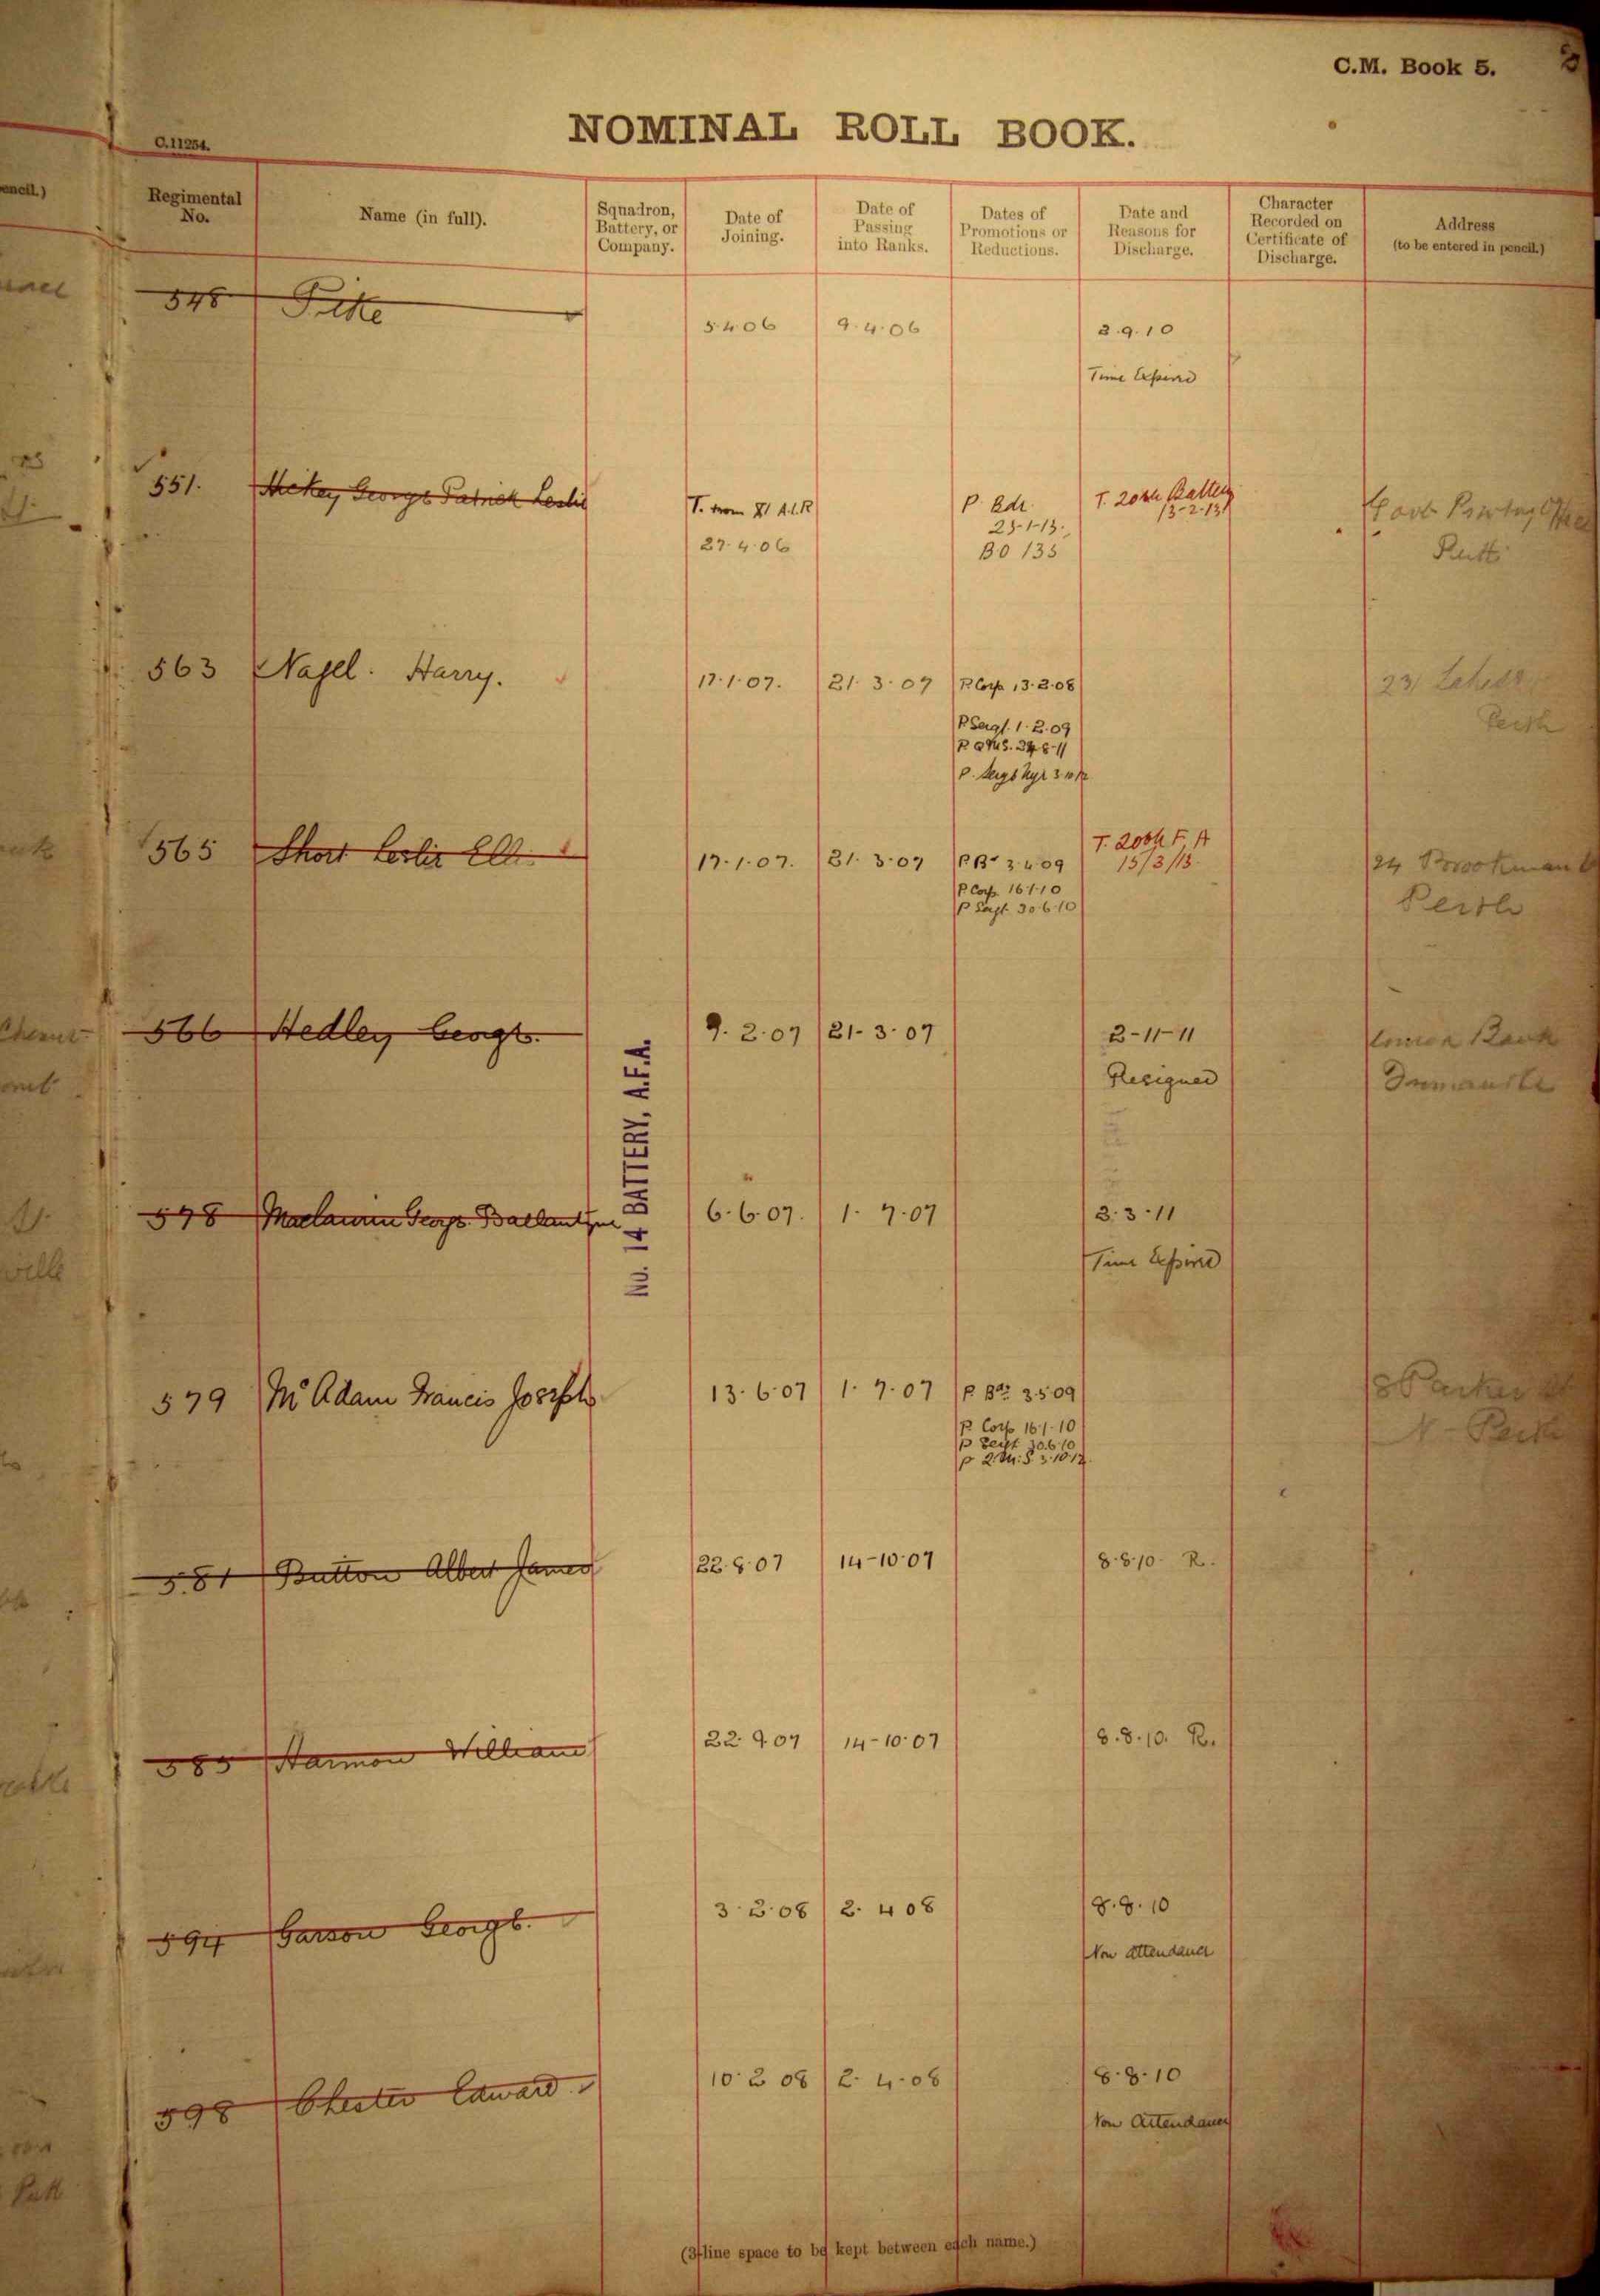 C.M. Book 5.
NOMINAL ROLL BOOK.
C.11254.
encil.)
Regimental No.
Name (in full).
Squadron, Battery, or Company.
Date of Joining.
Date of Passing into Ranks.
Dates of Promotions or Reductions.
Date and Reasons for Discharge.
Character Recorded on Certificate of Discharge.
Address (to be entered in pencil.)
548 Pike 5.4.06 9.4.06 2.9.10
Time Expired
551. George Patrick Leslie T. from XI A.I.R P. Bdr. T. 20th Battery
27.4.06 23-1-13. 13-2-13
BO 135
563 Nagel. Harry. 17.1.07. 21.3.07 P. Corp. 13.2.08 23
Perth
P Sergt. 1.2.09
P QMS. 24.8.11
565 Short Leslie 17.1.07. 21.3.07 P Br 3.4.09 T. 20th F.A 24 Brookman
15/3/13.
P Corp. 16.1.10 Perth
P Sergt. 30.6.10
566 Hedley George. 9.2.07 21-3-07 2-11-11 Bank
Resigned
No. 14 BATTERY, A.F.A.
578 Maclaurin George Ballantyne 6.6.07. 1.7.07 3.3.11
Time Expired
579 McAdam Francis Joseph 13.6.07 1.7.07 P. Bdr 3.5.09 8 Parker St
P. Corp 16.1.10 N-Perth
P Sergt 30.6.10
P Q.M.S. 3.10.12.
581 Button Albert James 22.8.07 14-10-07 8.8.10. R.
585 Harmon William 22.9.07 14-10-07 8.8.10. R.
594 Garson George. 3.2.08 2.4.08 8.8.10
Non attendance
598 Chester Edward 10.2.08 2.4.08 8.8.10
Non Attendance
(3-line space to be kept between each name.)